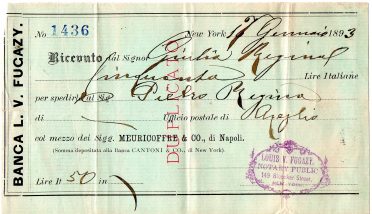 BANCA L. V. FUGAZY.
No 1436
New York 17 Gennaio 1893
Ricevuto dal Signor Giulia Regina
Cinquanta Lire Italiane
per spedirli al Sig Pietro Regina
di Ufficio postale di
col mezzo dei Sigg. MEURICOFFRE & CO., di Napoli.
(Somma depositata alla Banca CANTONI & CO., di New York).
Lire It 50 in
DUPLICATO
LOUIS V. FUGAZY,
NOTARY PUBLIC
149 Bleecker Street,
NEW YORK.